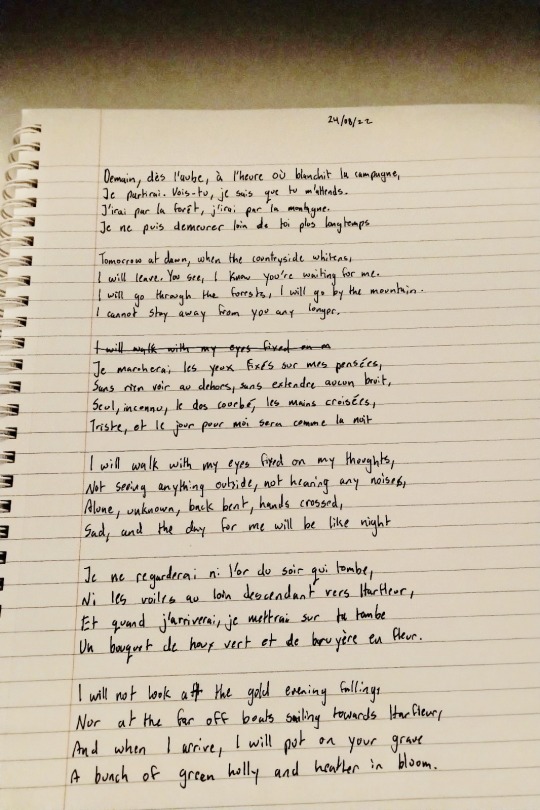 24/08/22
Demain, dès l'aube, à l'heure où blanchit la campagne,
Je partirai. Vois-tu, je sais que tu m'attends.
J'irai par la forêt, j'irai par la montagne.
Je ne puis demeurer loin de toi plus longtemps
Tomorrow at dawn, when the countryside whitens,
I will leave. You see, I know you're waiting for me.
I will go through the forests, I will go by the mountain.
I cannot stay away from you any longer.
I will walk with my eyes fixed on m
Je marcherai les yeux fixés sur mes pensées,
Sans rien voir au dehors, sans extendre aucun bruit,
Seul, inconnu, le dos courbé, les mains croisées,
Triste, et le jour pour moi sera comme la nuit
I will walk with my eyes fixed on my thoughts,
Not seeing anything outside, not hearing any noises,
Alone, unknown, back bent, hands crossed,
Sad, and the day for me will be like night
Je ne regarderai ni l'or du soir qui tombe,
Ni les voiles au loin descendant vers Harfleur,
Et quand j'arriverai, je mettrai sur ta tombe
Un bouquet de houx vert et de bruyère en fleur.
I will not look at the gold evening falling,
Nor at the far off boats sailing towards Harfleur,
And when I arrive, I will put on your grave
A bunch of green holly and heather in bloom.